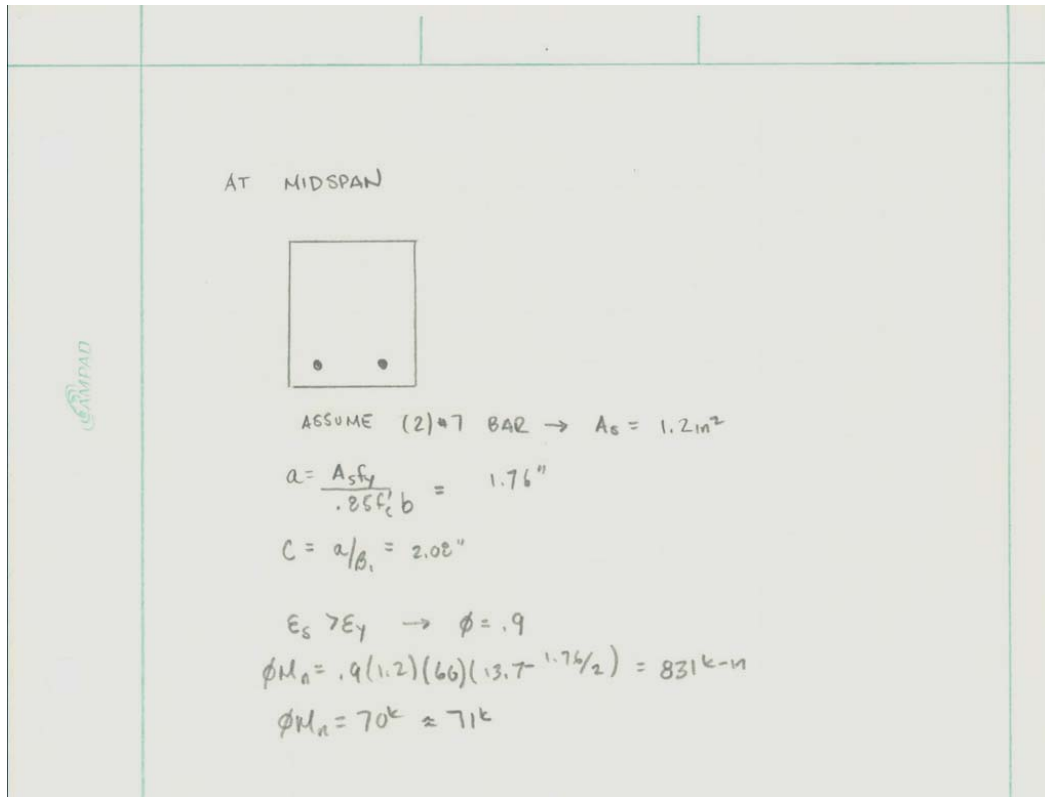 AT MIDSPAN
AMPAD
ASSUME (2)#7 BAR → As = 1.2in²
a = Asfy / .85f'c b = 1.76"
C = a/β₁ = 2.08"
εs > εy → φ = .9
φMn = .9(1.2)(60)(13.7 - 1.76/2) = 831 k-in
φMn = 70k ≈ 71k